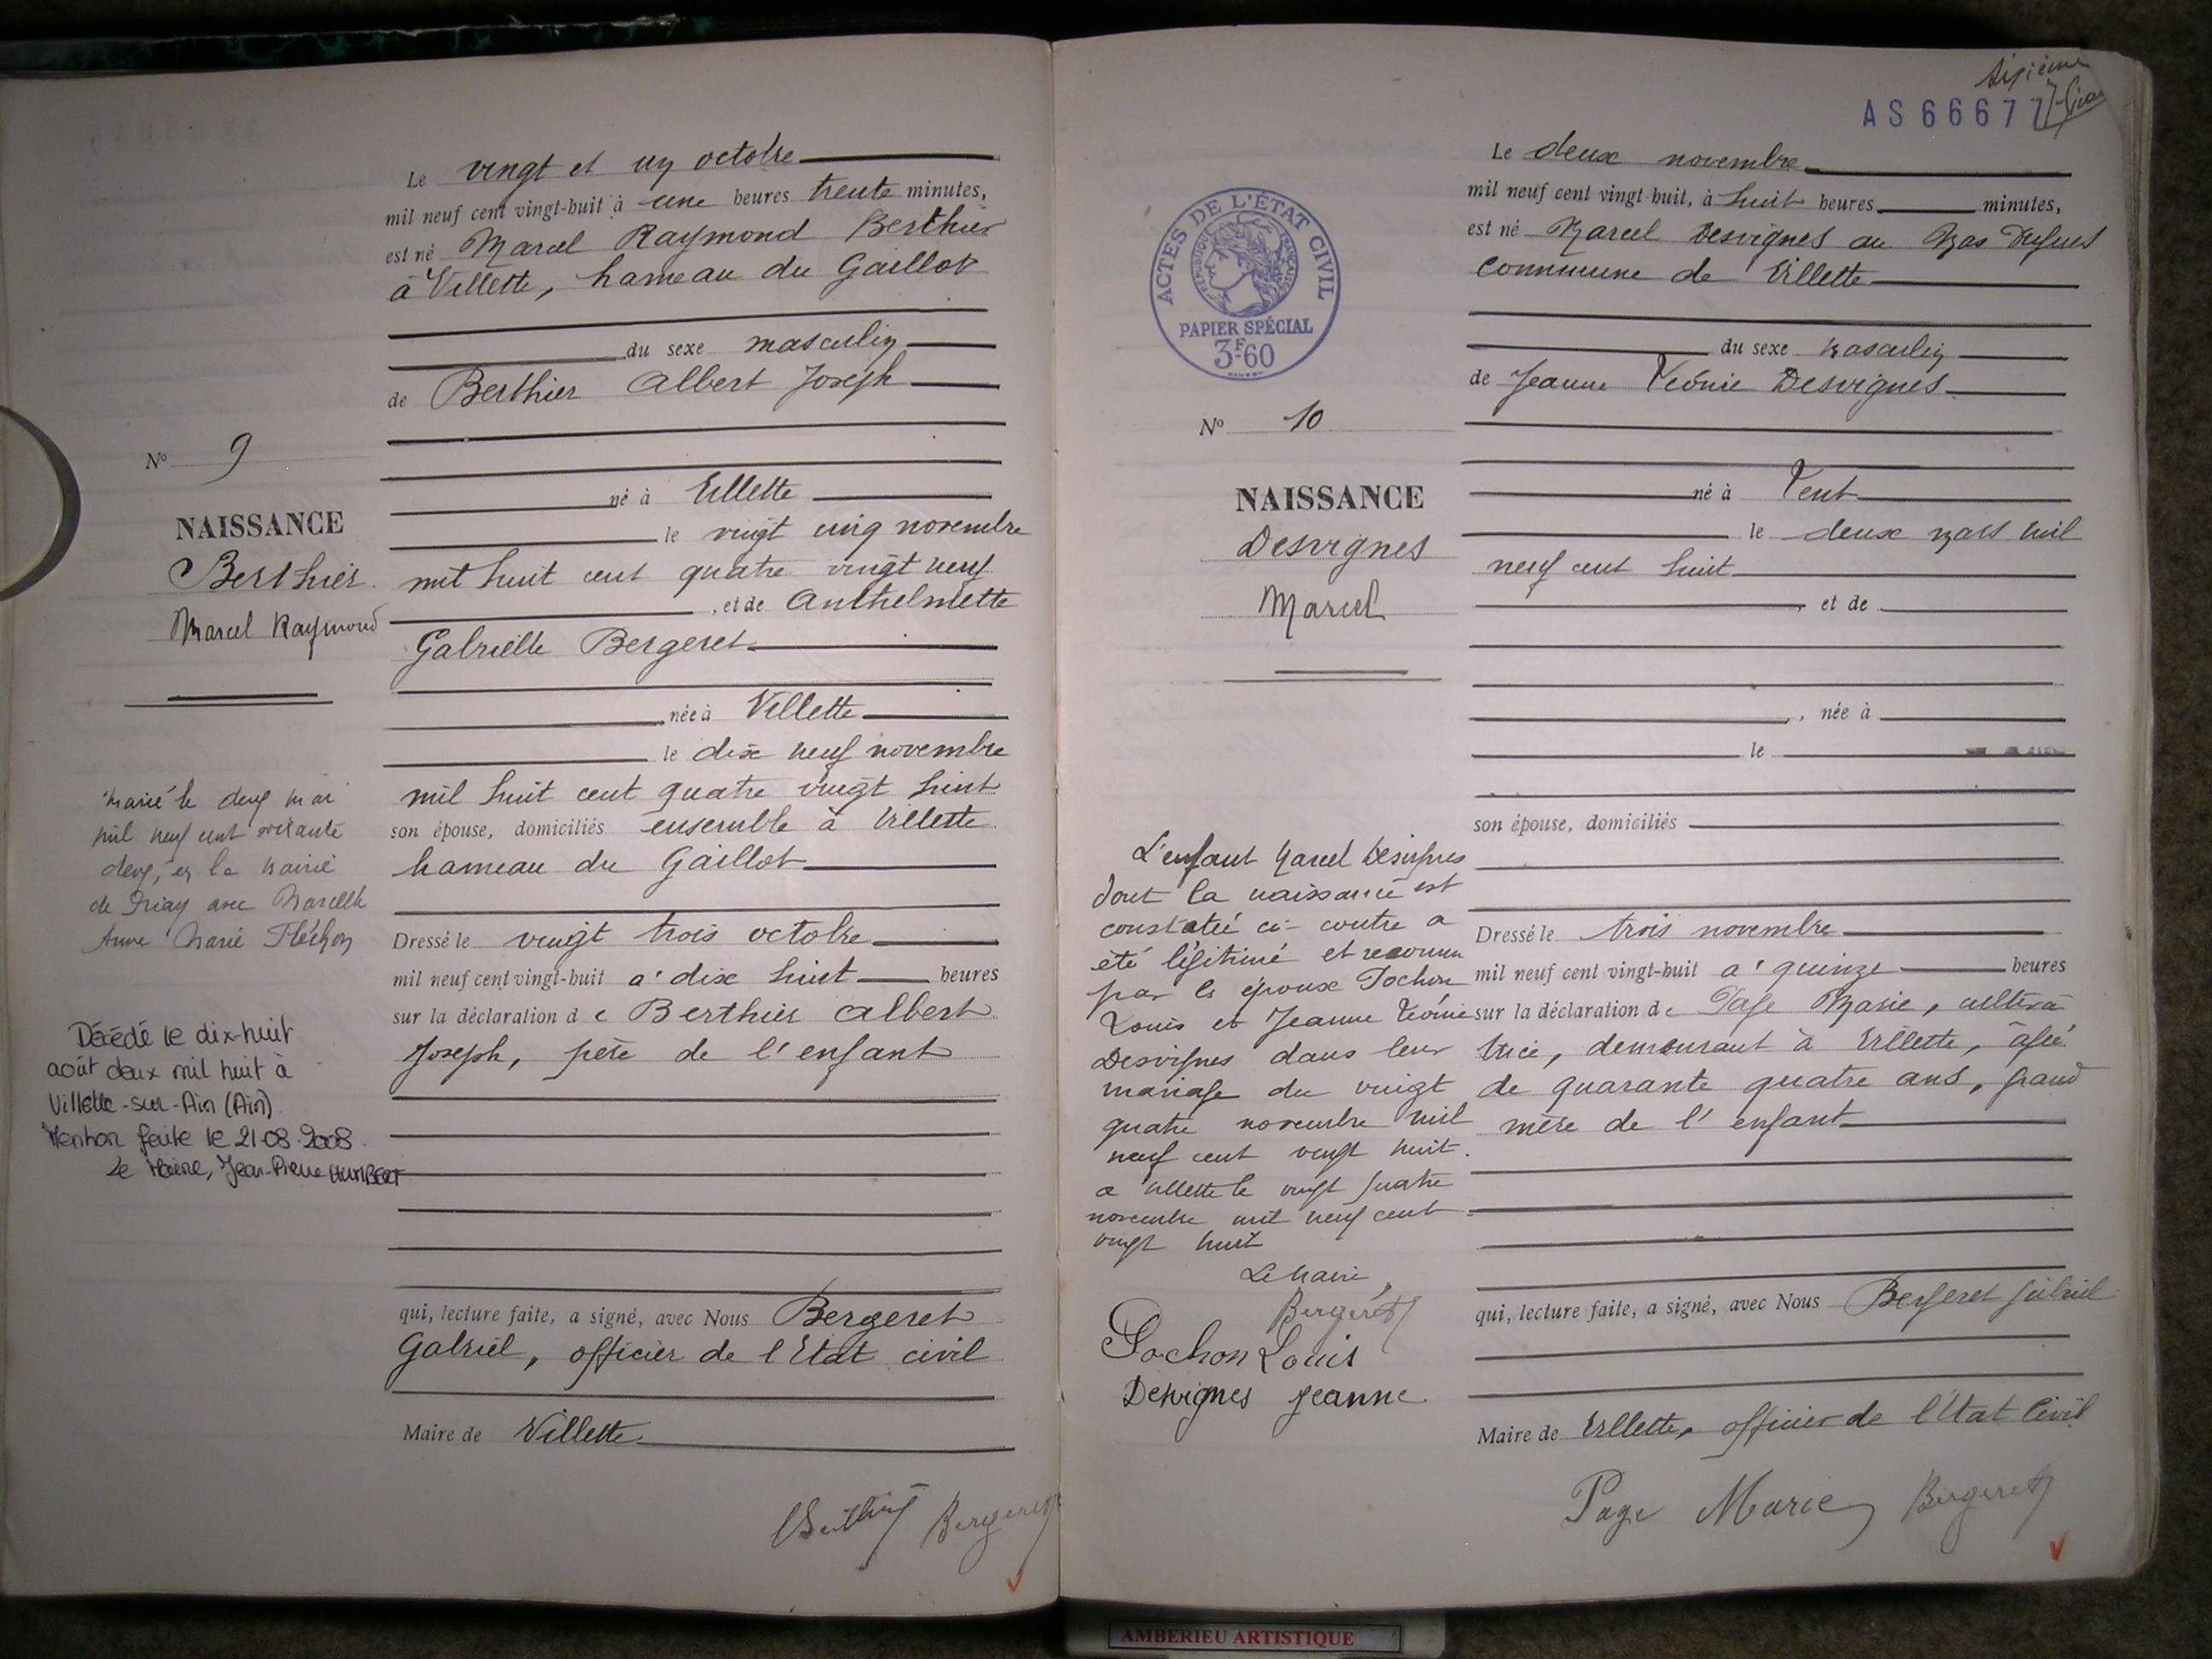 Le vingt et un octobre
mil neuf cent vingt-huit à une heures trente minutes,
est né Marcel Raymond Berthier
à Villette, hameau du Gaillot
du sexe masculin
de Berthier Albert Joseph
né à Villette
le vingt cinq novembre
mil huit cent quatre vingt neuf
, et de Anthelmette
Gabrielle Bergeret
née à Villette
le dix neuf novembre
mil huit cent quatre vingt huit
son épouse, domiciliés ensemble à Villette
hameau du Gaillot
Dressé le vingt trois octobre
mil neuf cent vingt-huit à dix huit heures
sur la déclaration de Berthier Albert
Joseph, père de l'enfant
qui, lecture faite, a signé, avec Nous Bergeret
Gabriel, officier de l'Etat civil
Maire de Villette
Berthier Bergeret
No 9
NAISSANCE
Berthier
Marcel Raymond
Marié le deux mai
mil neuf cent soixante
deux, en la mairie
de avec Marcelle
Anne Marie Fléchon
Décédé le dix-huit
août deux mil huit à
Villette-sur-Ain (Ain)
Mention faite le 21-08-2008
Le Maire, Jean-Pierre HUMBERT
sixième
AS 66677
ACTES DE L'ÉTAT CIVIL
RÉPUBLIQUE FRANÇAISE
PAPIER SPÉCIAL
3F60
No 10
NAISSANCE
Desvignes
Marcel
Le deux novembre
mil neuf cent vingt-huit, à huit heures minutes,
est né Marcel Desvignes au Mas
commune de Villette
du sexe masculin
de Jeanne Léonie Desvignes
né à Lent
le deux mars mil
neuf cent huit
, et de
, née à
le
son épouse, domiciliés
Dressé le trois novembre
mil neuf cent vingt-huit à quinze heures
sur la déclaration de Page Marie, cultiva
trice, demeurant à Villette, âgée
de quarante quatre ans, grand
mère de l'enfant
qui, lecture faite, a signé, avec Nous Bergeret Gabriel
Maire de Villette, officier de l'Etat Civil
Page Marie Bergeret
L'enfant Marcel Desvignes
dont la naissance est
constatée ci-contre a
été légitimé et reconnu
par les époux Pochon
Louis et Jeanne Léonie
Desvignes dans leur
mariage du vingt
quatre novembre mil
neuf cent vingt huit.
a Villette le vingt quatre
novembre mil neuf cent
vingt huit
Le Maire,
Bergeret
Pochon Louis
Desvignes Jeanne
AMBERIEU ARTISTIQUE